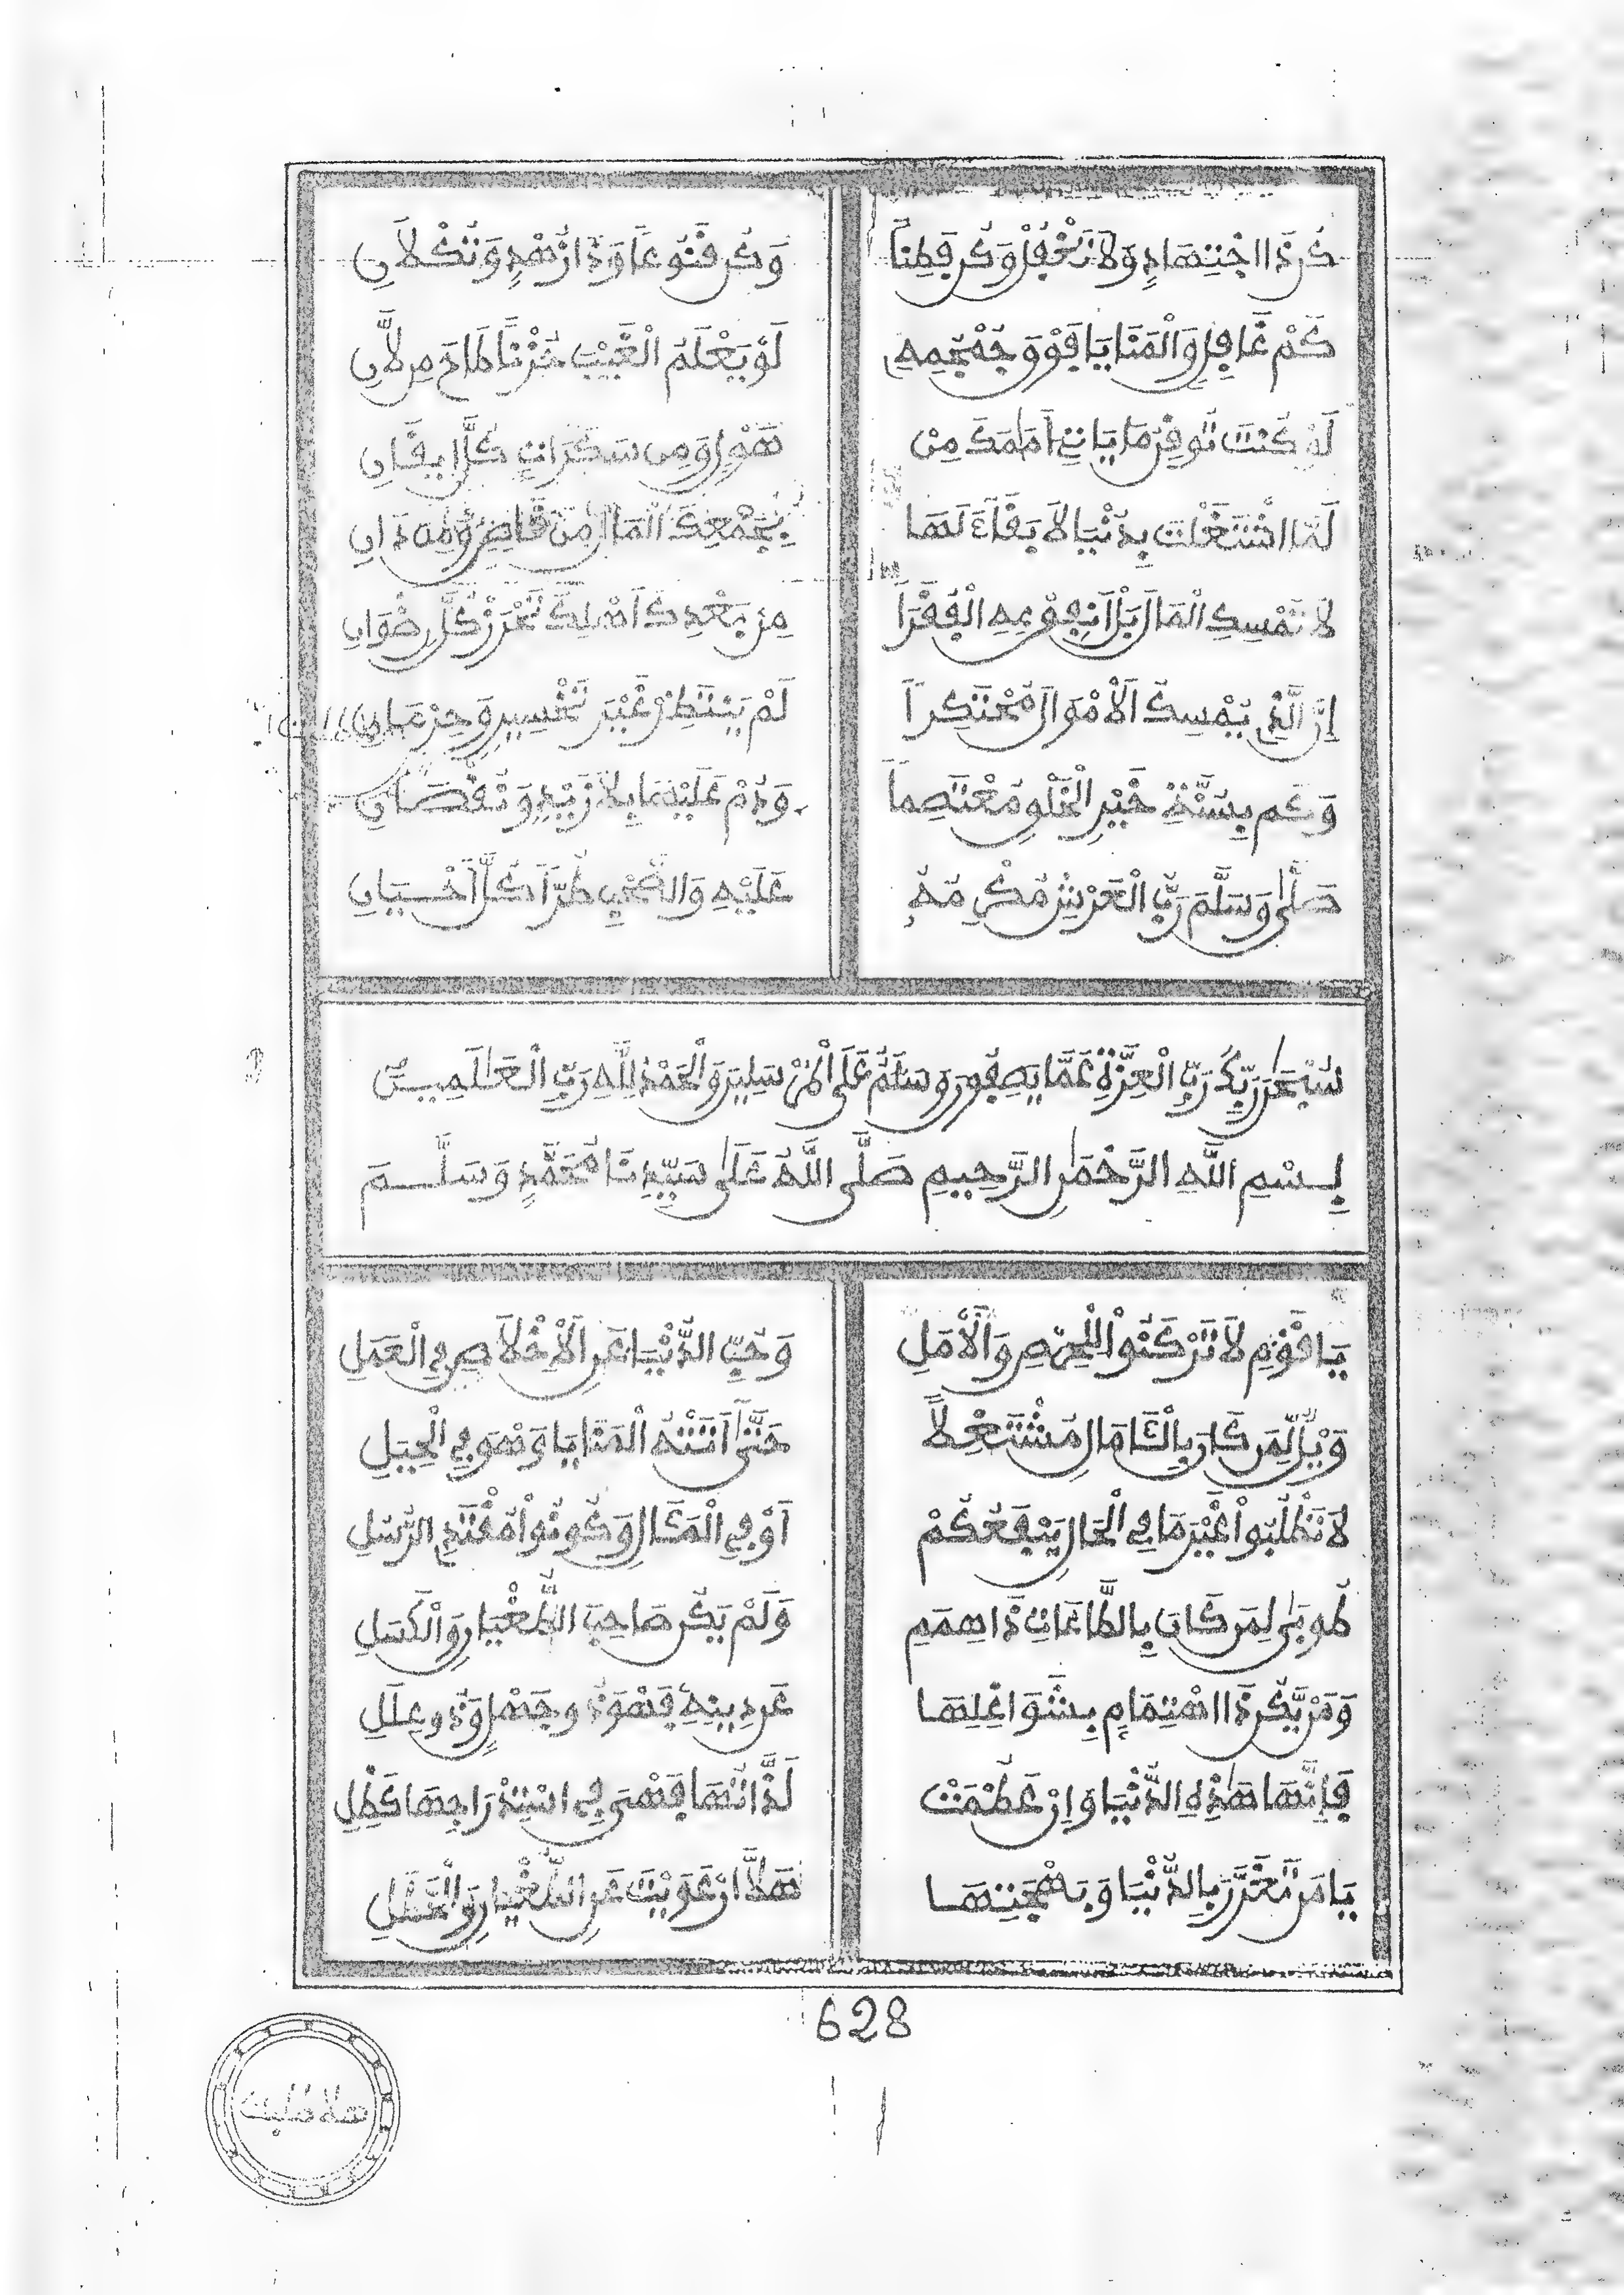 كُن ذَا اجْتِهَادٍ وَلَا تَغْفُلْ وَكُن فَطِناً وَكُن قَنُوعاً وَذَا زُهْدٍ وَتُكْلَانِ
كَمْ غَافِلٍ وَالْمَنَايَا فَوْقَ وَجْهَتِهِ لَوْ يَعْلَمُ الْغَيْبَ حُزْناً
لَوْ كُنْتَ تُوقِنُ مَا يَاتِي أَمَامَكَ مِنْ هَوْلٍ وَمِن سَكَرَاتٍ
لَمَا اشْتَغَلْتَ بِدُنْيَا لَا بَقَاءَ لَهَا بِجَمْعِكَ الْمَالَ مِنْ قَاصٍ وَمِن دَانِ
لَا تُمْسِكِ الْمَالَ بَلْ أَنفِقْهُ الْفُقَرَا مِن بَعْدِ أَهْلِكَ تُحْرِزْ كُلَّ رِضْوَانِ
إِنَّ الَّذِي يُمْسِكُ الْأَمْوَالَ مُحْتَكِراً لَمْ يَنْتَظِرْ غَيْرَ تَخْسِيرٍ وَحِرْمَانِ
بِسُنَّةِ خَيْرِ الْخَلْقِ مُعْتَصِماً وَدُمْ عَلَيْهَا بِلَا زَيْدٍ وَنُقْصَانِ
صَلَّى وَسَلَّمَ رَبُّ الْعَرْشِ عَلَيْهِ وَالصَّحْبِ طُرّاً كُلَّ أَحْيَانِ
سُبْحَٰنَ رَبِّكَ رَبِّ الْعِزَّةِ عَمَّا يَصِفُونَ وَسَلَٰمٌ عَلَى الْمُرْسَلِينَ وَالْحَمْدُ لِلَّهِ رَبِّ الْعَٰلَمِينَ
بِسْمِ اللَّهِ الرَّحْمَٰنِ الرَّحِيمِ صَلَّى اللَّهُ عَلَى سَيِّدِنَا مُحَمَّدٍ وَسَلَّمَ
يَا قَوْمِ لَا تَرْكَنُواْ لِلْحِرْصِ وَالْأَمَلِ وَحُبِّ الدُّنْيَا عَنِ الْإِخْلَاصِ فِي الْعَمَلِ
وَيْلٌ لِّمَن كَانَ بِالْآمَالِ مُشْتَغِلاً حَتَّى أَتَتْهُ الْمَنَايَا وَهْوَ فِي الْحِيَلِ
لَا تَطْلُبُواْ غَيْرَ مَا فِي الْحَالِ يَنْفَعُكُمْ أَوْ فِي الْمَئَالِ وَكُونُواْ مُقْتَدِي الرُّسُلِ
طُوبَى لِمَن كَانَ بِالطَّاعَاتِ ذَا هِمَمٍ وَلَمْ يَكُن صَاحِبَ الطُّغْيَانِ وَالْكَسَلِ
وَمَن يَّكُن ذَا اهْتِمَامٍ بِشَوَاغِلِهَا عَن دِينِهِ فَهْوَ ذُو جَهْلٍ وَذُو عِلَلِ
فَإِنَّهَا هَٰذِهِ الدُّنْيَا وَإِنْ عَظُمَتْ لَذَّاتُهَا فَهْيَ فِي اسْتِدْرَاجِهَا كَظُلَلِ
يَا مَن تَغَرَّرَ بِالدُّنْيَا وَبَهْجَتِهَا هَلَّا ارْعَوَيْتَ عَنِ الطُّغْيَانِ
628